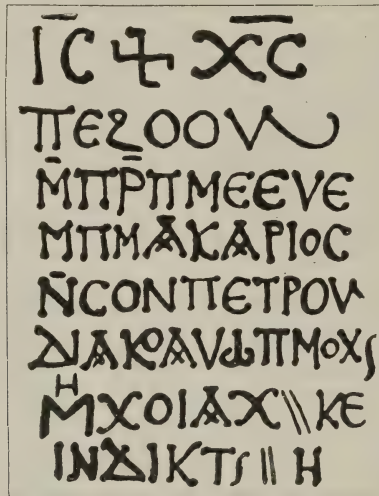 Ⲓ̅Ⲥ ⳨ Ⲭ̅Ⲥ̅
ⲠⲈϨⲞⲞⲨ
Ⲙ̄ⲠⲢ̄ⲠⲘⲈⲈⲨⲈ
ⲘⲠⲘⲀⲔⲀⲢⲒⲞⲤ
Ⲛ̄ⲤⲞⲚⲠⲈⲦⲢⲞⲨ
ⲆⲒⲀⲔⲞⲀⲨⲰⲠⲘⲞⲬ⳽
ⲘⲎⲬⲞⲒⲀⲬ \\ ⲔⲈ
ⲒⲚⲆⲒⲔⲦ⳽ // Ⲏ